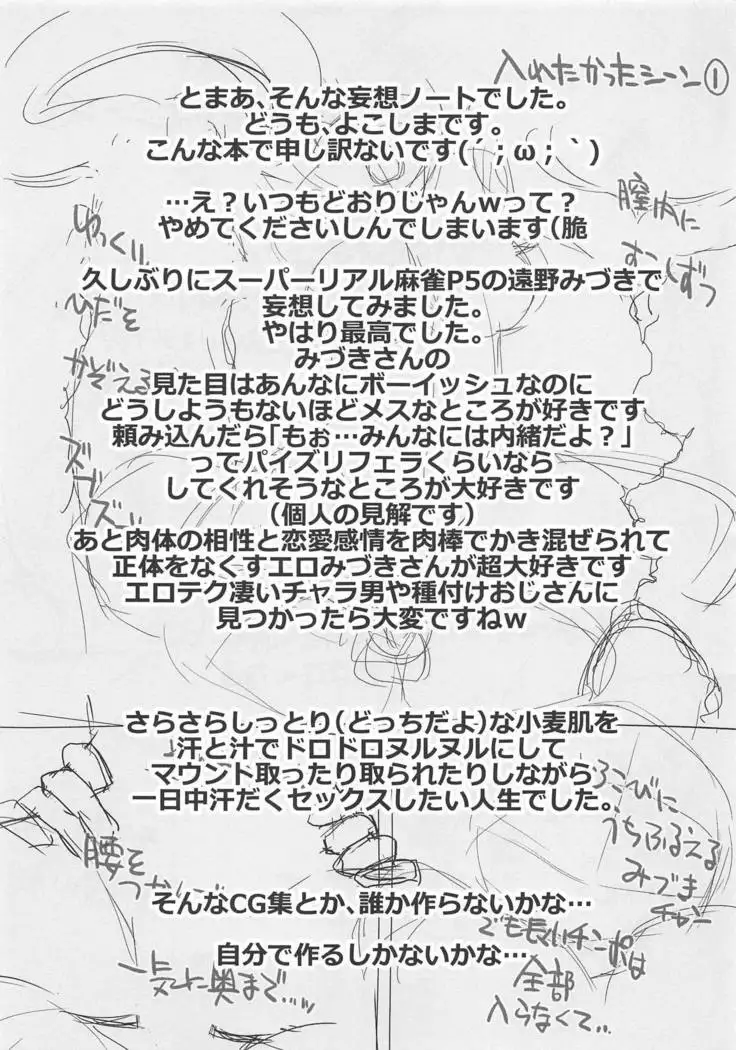 入れたかったシーン①
とまあ、そんな妄想ノートでした。
どうも、よこしまです。
こんな本で申し訳ないです(´；ω；｀)
…え？いつもどおりじゃんｗって？
やめてくださいしんでしまいます（脆
膣内に
ゆっくり
ひだを
かぞえる
ズブズブ…
久しぶりにスーパーリアル麻雀P5の遠野みづきで
妄想してみました。
やはり最高でした。
みづきさんの
見た目はあんなにボーイッシュなのに
どうしようもないほどメスなところが好きです
頼み込んだら「もぉ…みんなには内緒だよ？」
ってパイズリフェラくらいなら
してくれそうなところが大好きです
（個人の見解です）
あと肉体の相性と恋愛感情を肉棒でかき混ぜられて
正体をなくすエロみづきさんが超大好きです
エロテク凄いチャラ男や種付けおじさんに
見つかったら大変ですねｗ
さらさらしっとり（どっちだよ）な小麦肌を
汗と汁でドロドロヌルヌルにして
マウント取ったり取られたりしながら
一日中汗だくセックスしたい人生でした。
よろこびに
うちふるえる
みづき
チャン
腰を
つかんで
そんなCG集とか、誰か作らないかな…
自分で作るしかないかな…
一気に奥まで…
でも長いチンポは
全部
入らなくて…